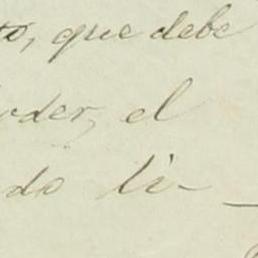 to, que debe
oder, el
do li-